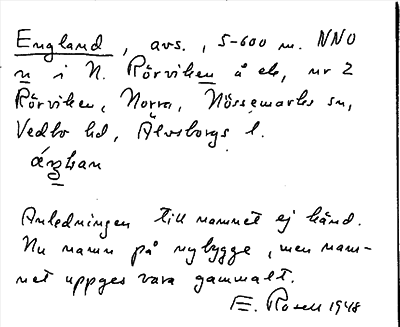 England, avs., 5-600 m. NNO
n i N. Rörviken å ek, nr 2
Rörviken, Norra, Nössemarks sn,
Vedbo hd, Älvsborgs l.
Anledningen till namnet ej känd.
Nu namn på nybygge, men nam-
net uppges vara gammalt.
E. Rosell 1948